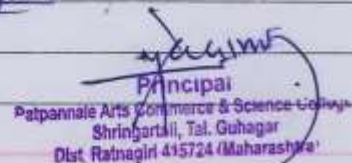 Principal
Patpannale Arts Commerce & Science College
Shringartali, Tal. Guhagar
Dist. Ratnagiri 415724 (Maharashtra)